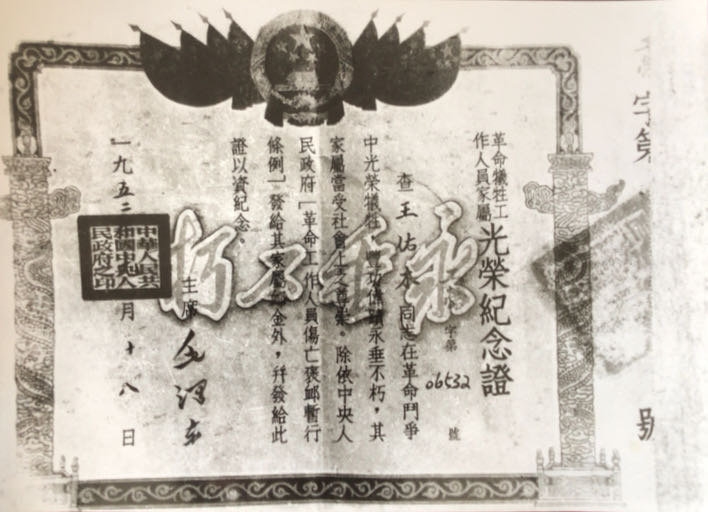 革命犧牲工
作人員家屬
光榮紀念證
字第
06532
號
查王佑本同志在革命鬥爭
中光榮犧牲，豐功偉績永垂不朽，其
家屬當受社會上之尊榮。除依中央人
民政府「革命工作人員傷亡褒卹暫行
條例」發給其家屬卹金外，并發給此
證以資紀念。
主席 毛澤東
一九五二 月十八日
中華人民共
和國中央人
民政府之印
永垂不朽
字第
號